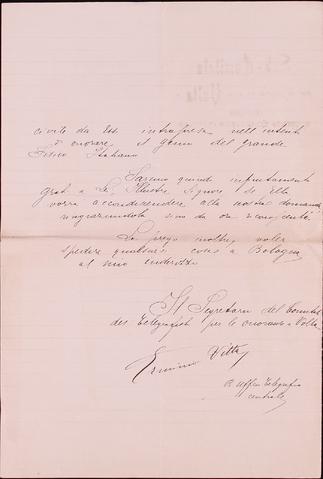 civile da Essi intrapresa nell'intento
di onorare il genio del grande
Fisico Italiano.
Saremo quindi infinitamente
grati a Lei Illustre Signore se Ella
vorrà accondiscendere alla nostra domanda
ringraziandola sino da ora
La prego inoltre voler
spedire qualsiasi cosa a Bologna
al mio indirizzo
Il Segretario del Comitato
dei Telegrafisti per le onoranze a Volta
Erminio
R. Ufficio Telegrafico
Centrale